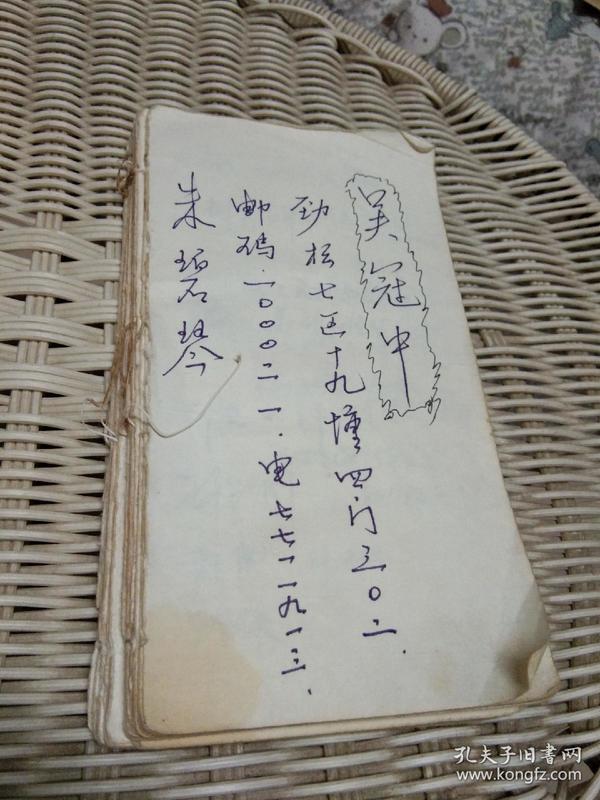 吴冠中
劲松七区十九楼四门三〇二.
邮码.一〇〇〇二一.电七七一一九一三、
朱碧琴
孔夫子旧書网
www.kongfz.com